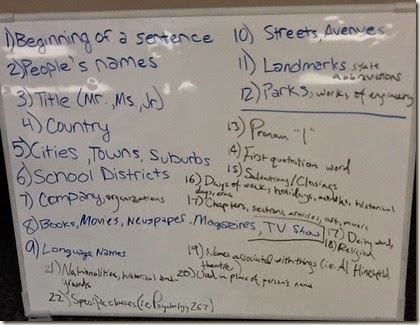 1) Beginning of a sentence
2) People's names
3) Title (Mr., Ms., Jr)
4) Country
5) Cities, Towns, Suburbs
6) School Districts
7) Company, organizations
8) Books, Movies, Newspapes, Magazines, TV Show
9) Language Names
21) Nationalities, historical
22) Specific classes (i.e. Psychology 262)
10) Streets, Avenues
11) Landmarks state
abbreviations
12) Parks, works of engineering
13) Pronoun "I"
14) First quotation word
15) Salutations/Closings
16) Days of week, holidays, months, historical
days, eras
17) Chapters, sections, articles, art, music
17) Deity words
18) Religion
19) Names associated with things (i.e. Al Hirschfeld
theatre)
20) Used in place of person's name